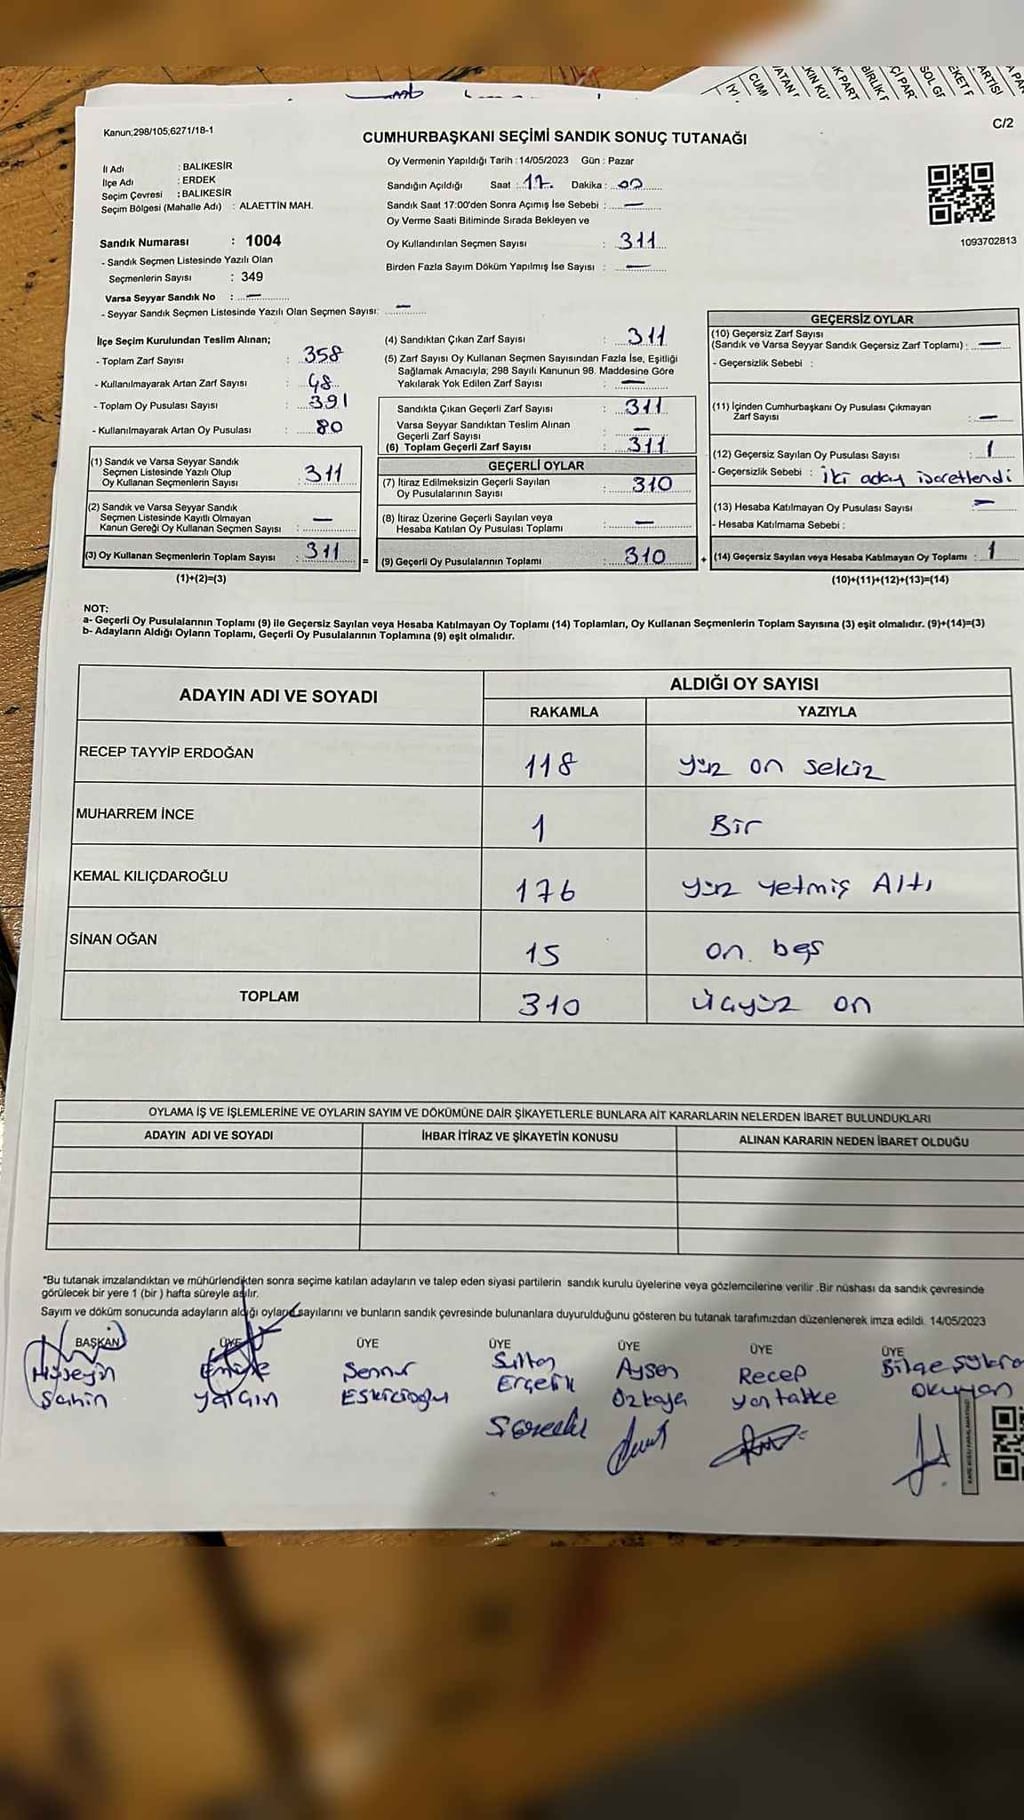 CUMHURBAŞKANI SEÇİMİ SANDIK SONUÇ TUTANAĞI
C/2
Kanun;298/105,6271/18-1
İl Adı : BALIKESİR
İlçe Adı : ERDEK
Seçim Çevresi : BALIKESİR
Seçim Bölgesi (Mahalle Adı) : ALAETTİN MAH.
Oy Vermenin Yapıldığı Tarih : 14/05/2023 Gün : Pazar
Sandığın Açıldığı Saat : 17. Dakika : 00
Sandık Saat 17:00'den Sonra Açımış İse Sebebi : —
Oy Verme Saati Bitiminde Sırada Bekleyen ve
Oy Kullandırılan Seçmen Sayısı : 311
Birden Fazla Sayım Döküm Yapılmış İse Sayısı : —
1093702813
Sandık Numarası : 1004
- Sandık Seçmen Listesinde Yazılı Olan
Seçmenlerin Sayısı : 349
Varsa Seyyar Sandık No : —
- Seyyar Sandık Seçmen Listesinde Yazılı Olan Seçmen Sayısı: —
İlçe Seçim Kurulundan Teslim Alınan;
- Toplam Zarf Sayısı : 358
- Kullanılmayarak Artan Zarf Sayısı : 48
- Toplam Oy Pusulası Sayısı : 391
- Kullanılmayarak Artan Oy Pusulası : 80
(1) Sandık ve Varsa Seyyar Sandık
Seçmen Listesinde Yazılı Olup
Oy Kullanan Seçmenlerin Sayısı : 311
(2) Sandık ve Varsa Seyyar Sandık
Seçmen Listesinde Kayıtlı Olmayan
Kanun Gereği Oy Kullanan Seçmen Sayısı : —
(3) Oy Kullanan Seçmenlerin Toplam Sayısı : 311 =
(1)+(2)=(3)
(4) Sandıktan Çıkan Zarf Sayısı : 311
(5) Zarf Sayısı Oy Kullanan Seçmen Sayısından Fazla İse, Eşitliği
Sağlamak Amacıyla; 298 Sayılı Kanunun 98. Maddesine Göre
Yakılarak Yok Edilen Zarf Sayısı : —
Sandıkta Çıkan Geçerli Zarf Sayısı : 311
Varsa Seyyar Sandıktan Teslim Alınan
Geçerli Zarf Sayısı : —
(6) Toplam Geçerli Zarf Sayısı : 311
GEÇERLİ OYLAR
(7) İtiraz Edilmeksizin Geçerli Sayılan
Oy Pusulalarının Sayısı : 310
(8) İtiraz Üzerine Geçerli Sayılan veya
Hesaba Katılan Oy Pusulası Toplamı : —
(9) Geçerli Oy Pusulalarının Toplamı : 310 +
GEÇERSİZ OYLAR
(10) Geçersiz Zarf Sayısı
(Sandık ve Varsa Seyyar Sandık Geçersiz Zarf Toplamı) : —
- Geçersizlik Sebebi :
(11) İçinden Cumhurbaşkanı Oy Pusulası Çıkmayan
Zarf Sayısı : —
(12) Geçersiz Sayılan Oy Pusulası Sayısı : 1
- Geçersizlik Sebebi : İki aday işaretlendi
(13) Hesaba Katılmayan Oy Pusulası Sayısı : —
- Hesaba Katılmama Sebebi :
(14) Geçersiz Sayılan veya Hesaba Katılmayan Oy Toplamı : 1
(10)+(11)+(12)+(13)=(14)
NOT:
a- Geçerli Oy Pusulalarının Toplamı (9) ile Geçersiz Sayılan veya Hesaba Katılmayan Oy Toplamı (14) Toplamları, Oy Kullanan Seçmenlerin Toplam Sayısına (3) eşit olmalıdır. (9)+(14)=(3)
b- Adayların Aldığı Oyların Toplamı, Geçerli Oy Pusulalarının Toplamına (9) eşit olmalıdır.
ADAYIN ADI VE SOYADI ALDIĞI OY SAYISI
RAKAMLA YAZIYLA
RECEP TAYYİP ERDOĞAN 118 yüz on sekiz
MUHARREM İNCE 1 Bir
KEMAL KILIÇDAROĞLU 176 yüz yetmiş Altı
SİNAN OĞAN 15 on beş
TOPLAM 310 üçyüz on
OYLAMA İŞ VE İŞLEMLERİNE VE OYLARIN SAYIM VE DÖKÜMÜNE DAİR ŞİKAYETLERLE BUNLARA AİT KARARLARIN NELERDEN İBARET BULUNDUKLARI
ADAYIN ADI VE SOYADI İHBAR İTİRAZ VE ŞİKAYETİN KONUSU ALINAN KARARIN NEDEN İBARET OLDUĞU
*Bu tutanak imzalandıktan ve mühürlendikten sonra seçime katılan adayların ve talep eden siyasi partilerin sandık kurulu üyelerine veya gözlemcilerine verilir .Bir nüshası da sandık çevresinde
görülecek bir yere 1 (bir ) hafta süreyle asılır.
Sayım ve döküm sonucunda adayların aldığı oyların sayılarını ve bunların sandık çevresinde bulunanlara duyurulduğunu gösteren bu tutanak tarafımızdan düzenlenerek imza edildi. 14/05/2023
BAŞKAN ÜYE ÜYE ÜYE ÜYE ÜYE ÜYE
Hüseyin Emine Sennur Sultan Aysen Recep Bilge Şükro
Şahin Yalgın ESKİCİOĞLU Erçelik Özkaya Yortakke Okuyan